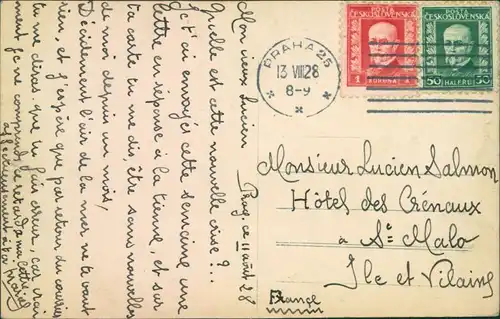 Prag, ce 11 août 28
Mon vieux Lucien
Quelle est cette nouvelle crise ?...
Je t'ai envoyé cette semaine une
lettre en réponse à la tienne, et sur
ta carte tu me dis être sans nouvelles
de moi depuis un mois,
Décidément l'air de la mer ne te vaut
rien, et j'espère que par retour du courrier
tu me diras que tu fais erreur, car vrai
ment je ne comprends
le retard à ma lettre,
affectueusement à toi
POSTA
ČESKOSLOVENSKA
1 KORUNA 1
POSTA
ČESKOSLOVENSKA
50 HALERU 50
PRAHA 25
13 VIII 28
8-9
Monsieur Lucien Salmon
Hôtel des Crénaux
à St Malo
Ile et Vilaine
France